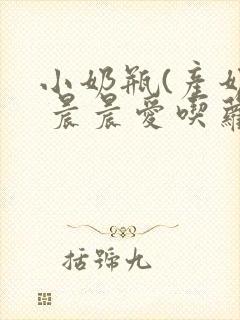 小奶瓶(產奶
晨晨愛喫蘿
括號九